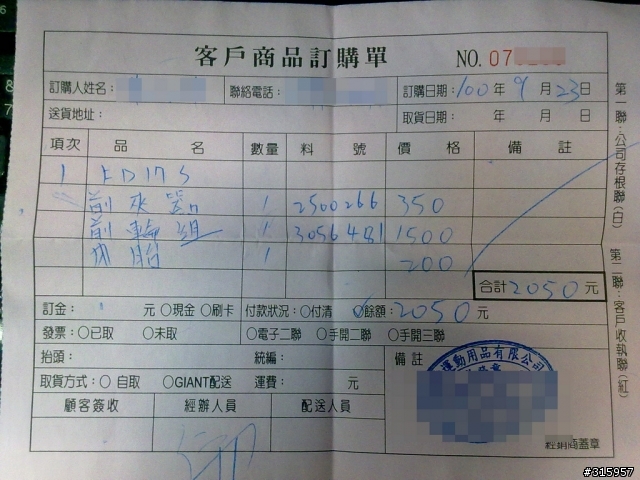 客戶商品訂購單 NO. 07
訂購人姓名： 聯絡電話： 訂購日期：100年9月23日
送貨地址： 取貨日期： 年 月 日
項次 品名 數量 料號 價格 備註
1
前夾器 1 2500266 350
前輪組 1 3056481 1500
內胎 1 200
合計2050元
訂金： 元 ○現金 ○刷卡 付款狀況：○付清 ○餘額：2050元
發票：○已取 ○未取 ○電子二聯 ○手開二聯 ○手開三聯
抬頭： 統編： 備註
取貨方式：○ 自取 ○GIANT配送 運費： 元
顧客簽收 經辦人員 配送人員
運動用品有限公司
經銷商蓋章
第一聯：公司存根聯(白)
第二聯：客戶收執聯(紅)
#315957